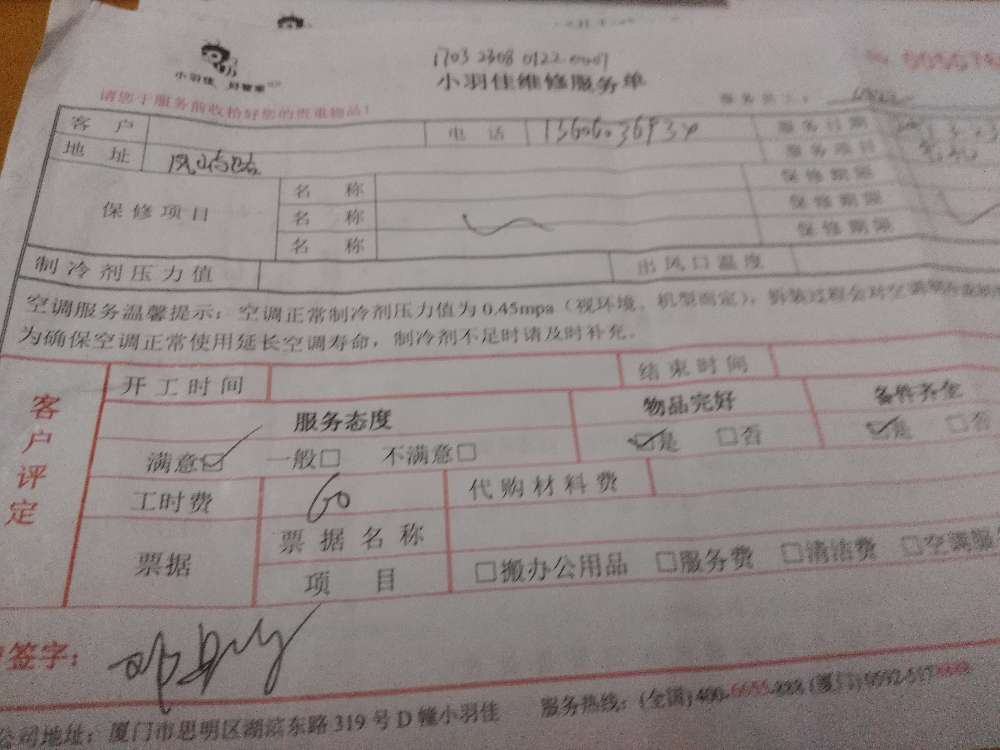 1703 2308 0122
小羽佳 好管家
小羽佳维修服务单
请您于服务前收拾好您的贵重物品!
客户 电话 服务日期
地址 服务项目
保修项目 名称 保修期限
名称 保修期限
名称 保修期限
制冷剂压力值 出风口温度
空调服务温馨提示：空调正常制冷剂压力值为0.45mpa（视环境、机型而定），拆装过程会对空调
为确保空调正常使用延长空调寿命，制冷剂不足时请及时补充。
客户评定
开工时间 结束时间
服务态度 物品完好 备件齐全
满意☑ 一般□ 不满意□ ☑是 □否 ☑是 □否
工时费 60 代购材料费
票据 票据名称
项目 □搬办公用品 □服务费 □清洁费 □空调服
签字：
公司地址：厦门市思明区湖滨东路319号D幢小羽佳 服务热线：(全国)400-6655-888 (厦门)0592-517